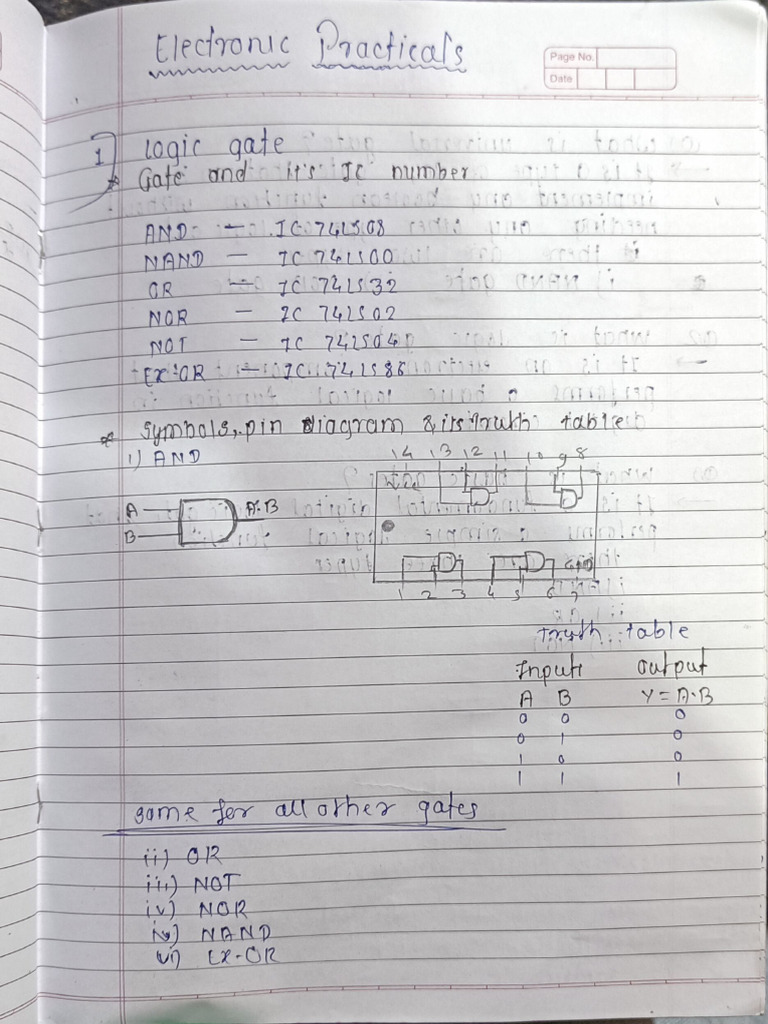 Electronic Practicals
Page No.
Date
1) Logic gate
* Gate and it's IC number
AND — IC 74LS08
NAND — IC 74LS00
OR — IC 74LS32
NOR — IC 74LS02
NOT — IC 74LS04
EX-OR — IC 74LS86
* Symbols, pin diagram & its truth table
i) AND
14 13 12 11 10 9 8
A
A·B
B
GND
1 2 3 4 5 6 7
truth table
Inputs Output
A B Y = A·B
0 0 0
0 1 0
1 0 0
1 1 1
same for all other gates
ii) OR
iii) NOT
iv) NOR
v) NAND
vi) EX-OR